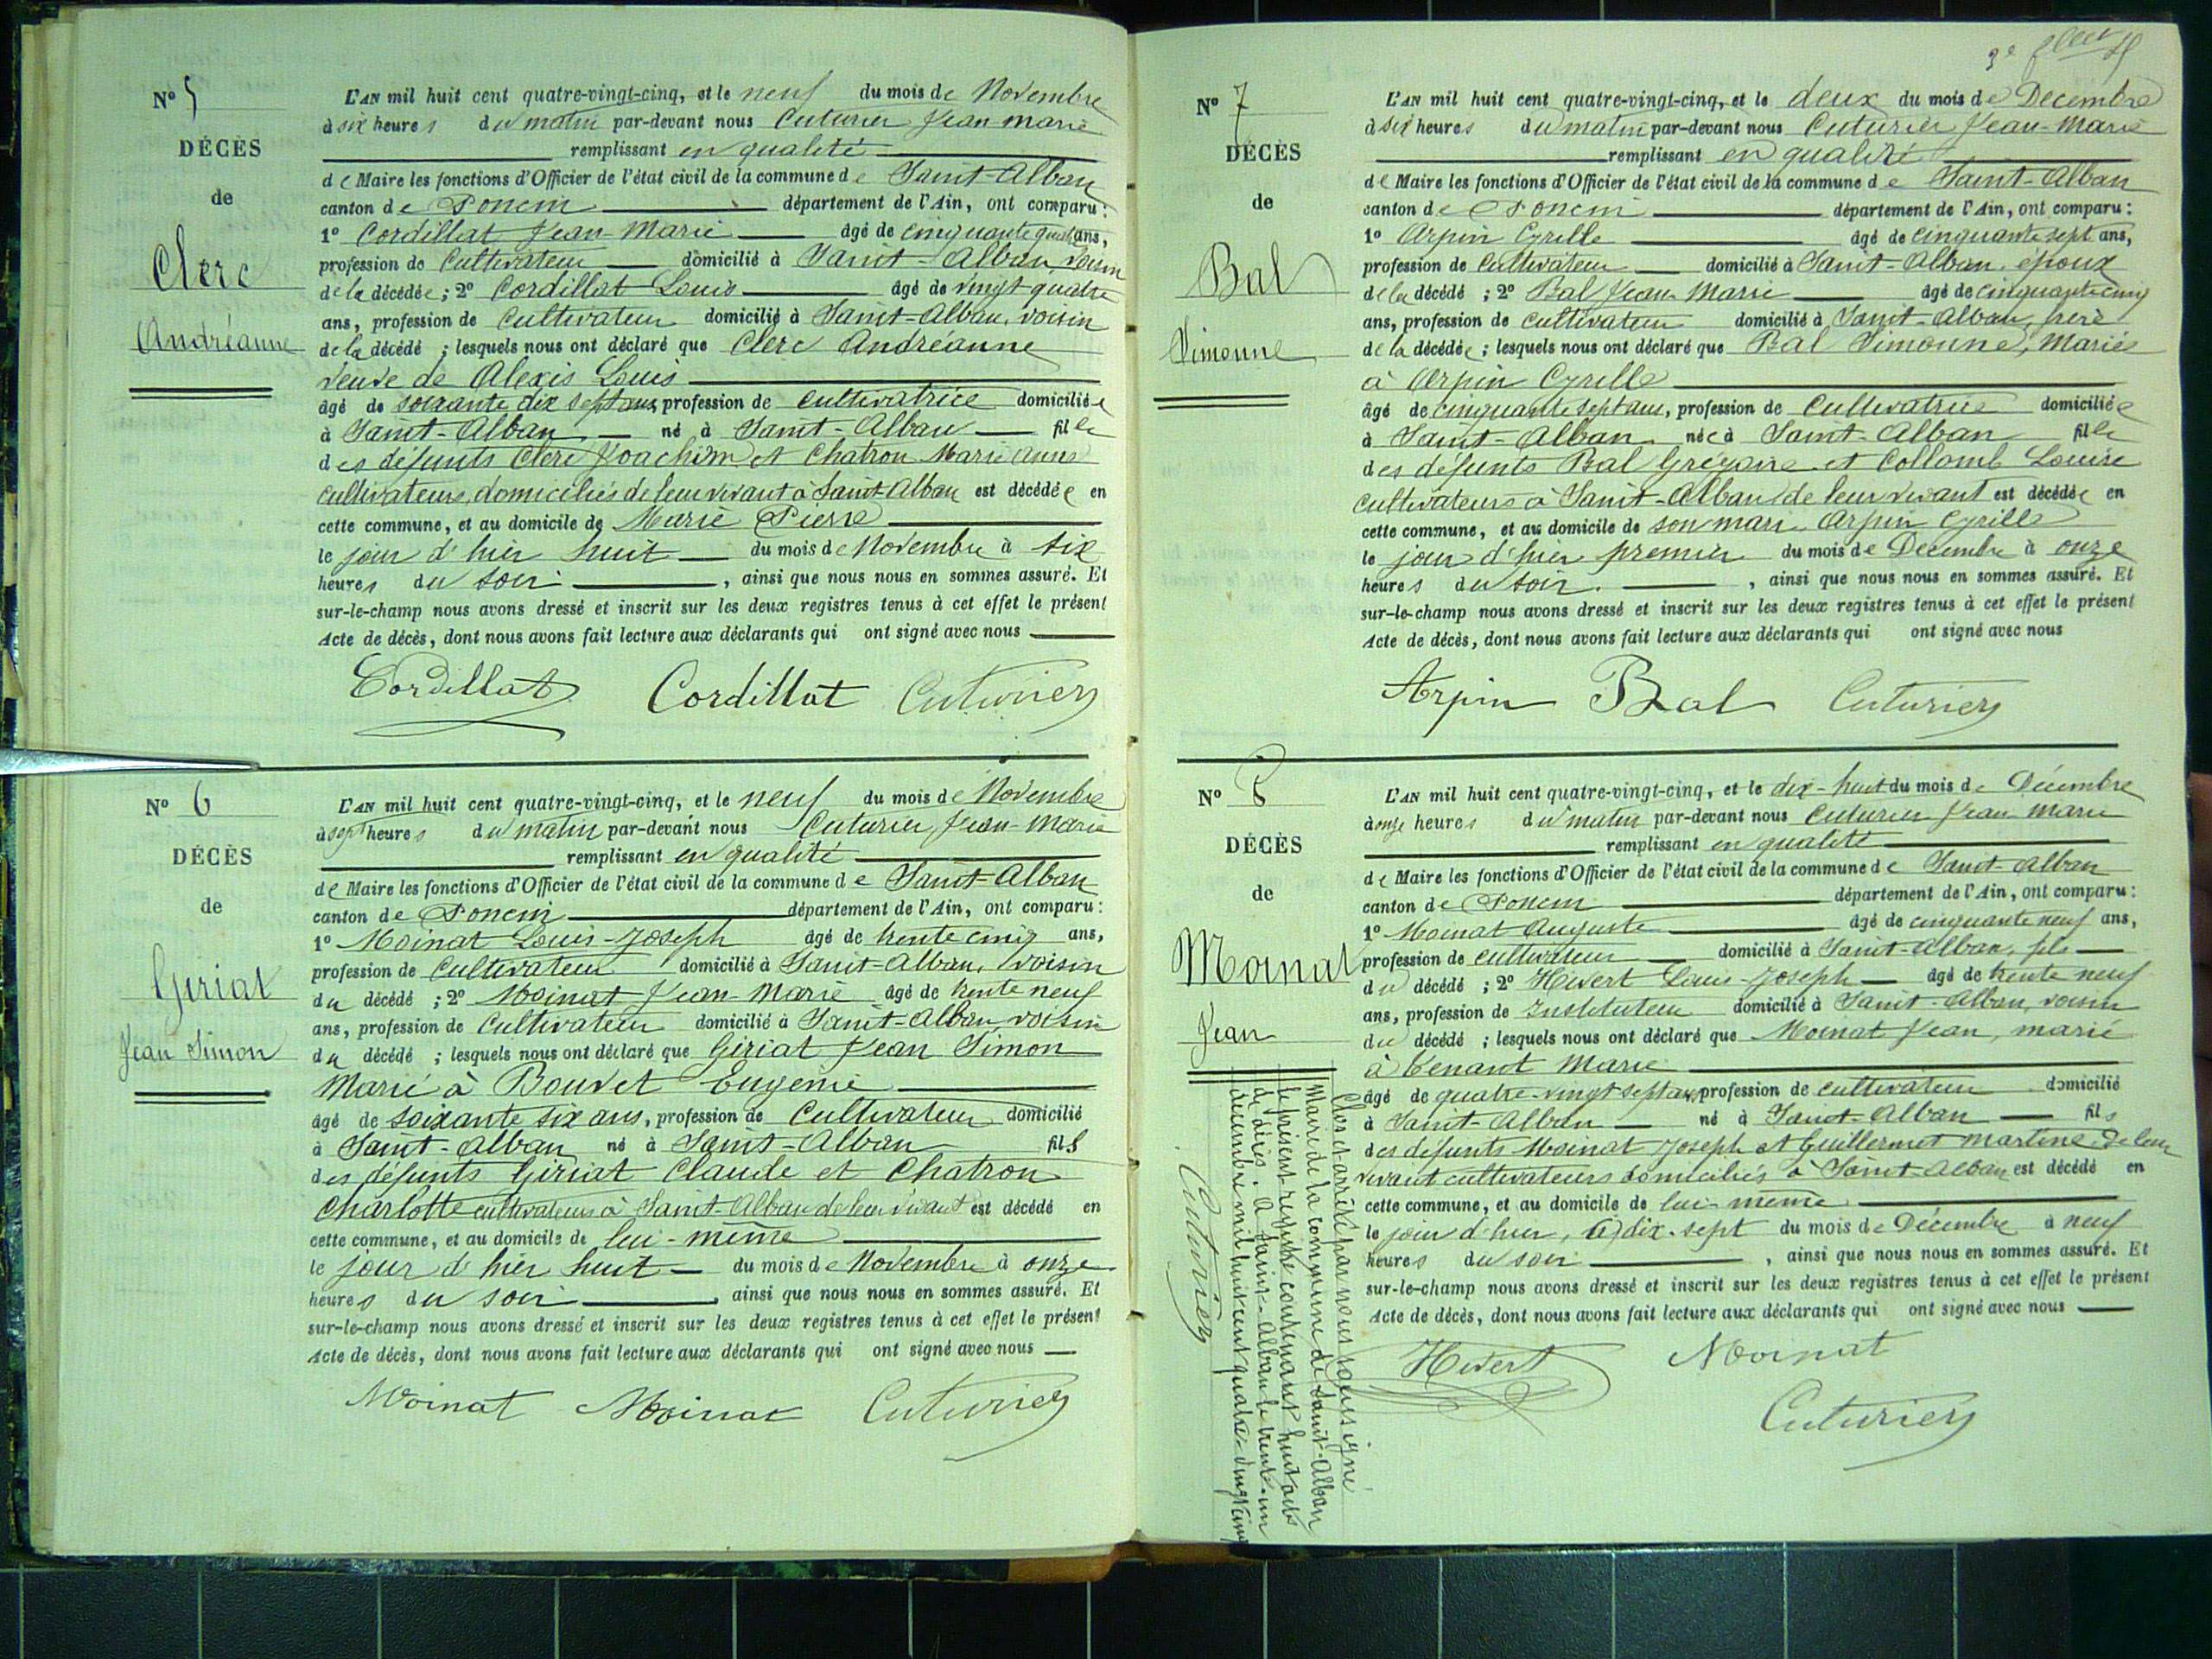 N° 5
DÉCÈS
de
Clerc
Andréanne
L'AN mil huit cent quatre-vingt-cinq, et le neuf du mois de Novembre
à six heures du matin par-devant nous Cuturier Jean marie
remplissant en qualité
de Maire les fonctions d'Officier de l'état civil de la commune de Saint-Alban
canton de Poncin département de l'Ain, ont comparu :
1° Cordillat Jean-Marie âgé de cinquante quatre ans,
profession de Cultivateur domicilié à Saint-Alban, voisin
de la décédée ; 2° Cordillat Louis âgé de vingt quatre
ans, profession de Cultivateur domicilié à Saint-Alban, voisin
de la décédé ; lesquels nous ont déclaré que Clerc Andréanne
veuve de Alexis Louis
âgé de soixante dix sept ans, profession de cultivatrice domiciliée
à Saint-Alban né à Saint-Alban fille
des défunts Clerc Joachim et Chatron Marie anne
cultivateurs, domiciliés de leur vivant à Saint-Alban est décédée en
cette commune, et au domicile de Marie Pierre
le jour d'hier huit du mois de Novembre à six
heures du soir , ainsi que nous nous en sommes assuré. Et
sur-le-champ nous avons dressé et inscrit sur les deux registres tenus à cet effet le présent
Acte de décès, dont nous avons fait lecture aux déclarants qui ont signé avec nous
Cordillat Cordillat Cuturier
N° 6
DÉCÈS
de
Giriat
Jean Simon
L'AN mil huit cent quatre-vingt-cinq, et le neuf du mois de Novembre
à sept heures du matin par-devant nous Cuturier, Jean-Marie
remplissant en qualité
de Maire les fonctions d'Officier de l'état civil de la commune de Saint-Alban
canton de Poncin département de l'Ain, ont comparu :
1° Moinat Louis-Joseph âgé de trente cinq ans,
profession de Cultivateur domicilié à Saint-Alban, voisin
du décédé ; 2° Moinat Jean-Marie âgé de trente neuf
ans, profession de Cultivateur domicilié à Saint-Alban, voisin
du décédé ; lesquels nous ont déclaré que Giriat Jean Simon
Marié à Bouvet Eugenie
âgé de soixante six ans, profession de Cultivateur domicilié
à Saint-Alban né à Saint-Alban fils
des défunts Giriat Claude et Chatron
Charlotte cultivateurs à Saint-Alban de leur vivant est décédé en
cette commune, et au domicile de lui-même
le jour d'hier huit du mois de Novembre à onze
heures du soir , ainsi que nous nous en sommes assuré. Et
sur-le-champ nous avons dressé et inscrit sur les deux registres tenus à cet effet le présent
Acte de décès, dont nous avons fait lecture aux déclarants qui ont signé avec nous
Moinat Moinat Cuturier
3e
N° 7
DÉCÈS
de
Bal
Simonne
L'AN mil huit cent quatre-vingt-cinq, et le deux du mois de Decembre
à six heures du matin par-devant nous Cuturier Jean-Marie
remplissant en qualité
de Maire les fonctions d'Officier de l'état civil de la commune de Saint-Alban
canton de Poncin département de l'Ain, ont comparu :
1° Arpin Cyrille âgé de cinquante sept ans,
profession de Cultivateur domicilié à Saint-Alban, époux
de la décédé ; 2° Bal Jean Marie âgé de cinquante cinq
ans, profession de cultivateur domicilié à Saint-Alban, frère
de la décédée ; lesquels nous ont déclaré que Bal Simonne, Mariée
à Arpin Cyrille
âgé de cinquante sept ans, profession de Cultivatrice domiciliée
à Saint-Alban née à Saint-Alban fille
des défunts Bal Grégoire et Collomb Louise
cultivateurs à Saint-Alban de leur vivant est décédée en
cette commune, et au domicile de son mari Arpin Cyrille
le jour d'hier premier du mois de Decembre à onze
heures du soir. , ainsi que nous nous en sommes assuré. Et
sur-le-champ nous avons dressé et inscrit sur les deux registres tenus à cet effet le présent
Acte de décès, dont nous avons fait lecture aux déclarants qui ont signé avec nous
Arpin Bal Cuturier
N° 8
DÉCÈS
de
Moinat
Jean
L'AN mil huit cent quatre-vingt-cinq, et le dix-huit du mois de Décembre
à onze heures du matin par-devant nous Cuturier Jean Marie
remplissant en qualité
de Maire les fonctions d'Officier de l'état civil de la commune de Saint-Alban
canton de Poncin département de l'Ain, ont comparu :
1° Moinat Auguste âgé de cinquante neuf ans,
profession de cultivateur domicilié à Saint-Alban, fils
du décédé ; 2° Hivert Louis-Joseph âgé de trente neuf
ans, profession de Instituteur domicilié à Saint-Alban, voisin
du décédé ; lesquels nous ont déclaré que Moinat Jean, marié
à Tenant Marie
âgé de quatre-vingt sept ans, profession de cultivateur domicilié
à Saint-Alban né à Saint-Alban fils
des défunts Moinat Joseph et Guillermet Martine de leur
vivant cultivateurs domiciliés à Saint-Alban est décédé en
cette commune, et au domicile de lui-même
le jour d'hier, dix-sept du mois de Décembre à neuf
heures du soir , ainsi que nous nous en sommes assuré. Et
sur-le-champ nous avons dressé et inscrit sur les deux registres tenus à cet effet le présent
Acte de décès, dont nous avons fait lecture aux déclarants qui ont signé avec nous
Hivert Moinat
Cuturier
Clos et arrêté par nous soussigné
Maire de la commune de Saint-Alban
le présent registre contenant huit actes
de décès. A Saint-Alban le trente-un
décembre mil huit cent quatre-vingt cinq
Cuturier